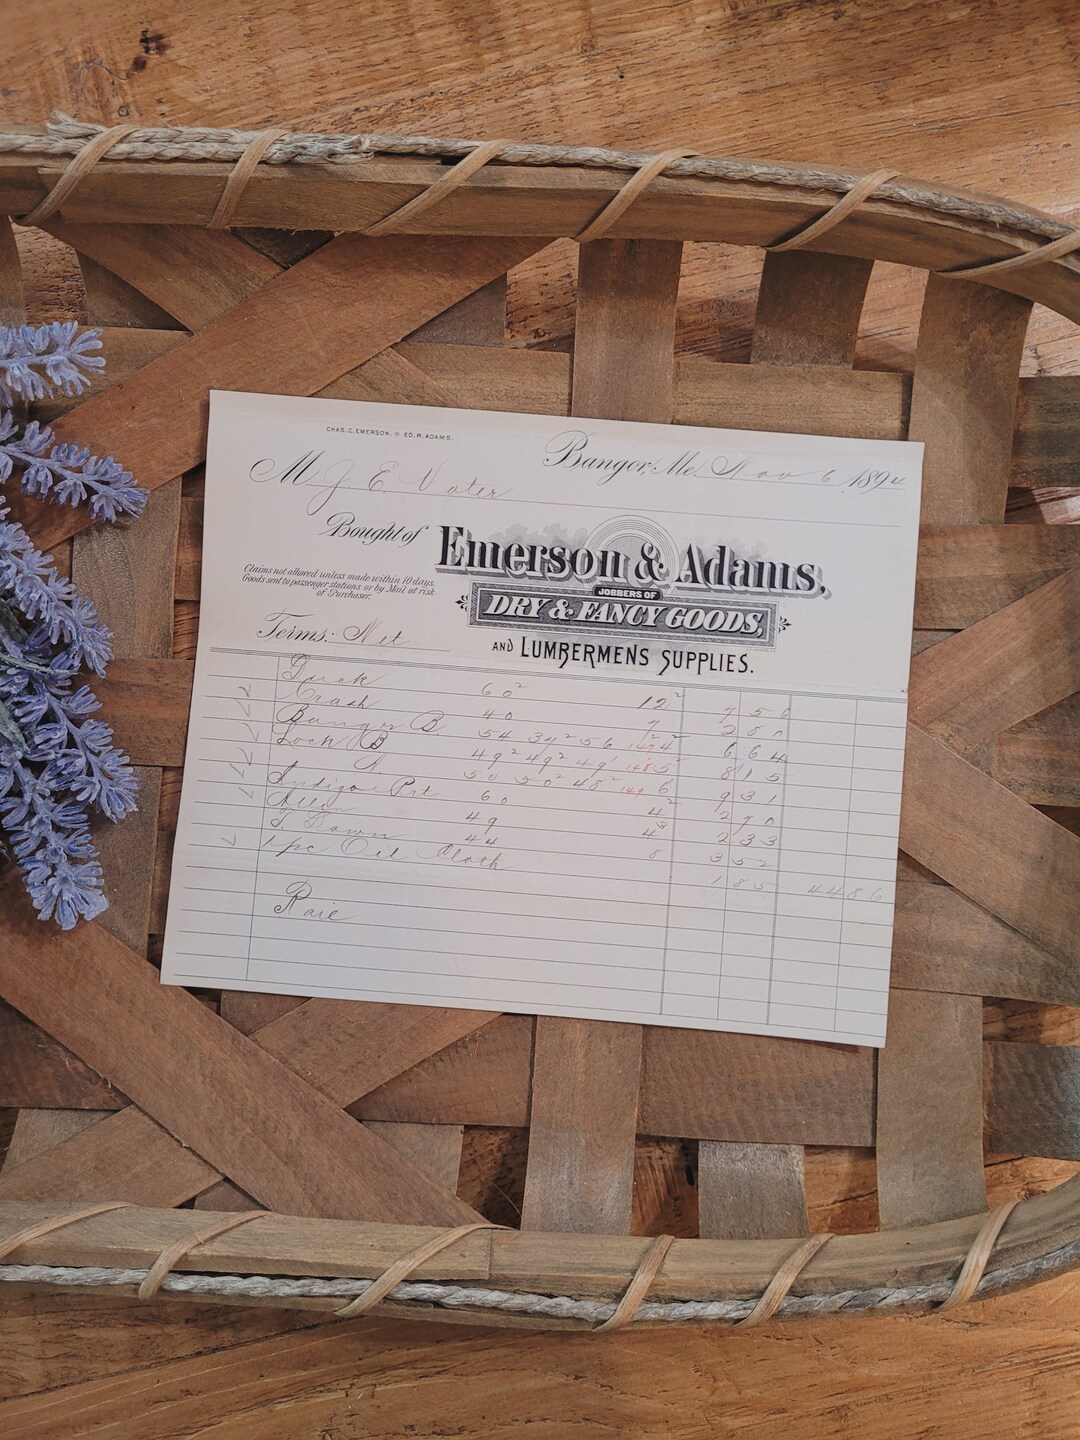 CHAS. C. EMERSON. ED. R. ADAMS.
Bangor, Me. Nov 6 1894
M J. E. Voter
Bought of Emerson & Adams,
JOBBERS OF
DRY & FANCY GOODS,
AND LUMBERMENS SUPPLIES.
Claims not allowed unless made within 10 days.
Goods sent to passenger stations or by Mail at risk
of Purchaser.
Terms: Net
Duck 60² 12² 7 5 6
Crash 40 7 2 8 0
Bangor B 54 34² 56 147 4² 6 6 4
Loch B 49² 49² 49¹ 148 5² 8 1 5
50 50² 48² 149 6 9 3 1
Indigo Prt 60 4² 2 7 0
Allen 49 4³ 2 3 3
44 8 3 5 2
1 pc Oil Cloth 1 8 5 44 86